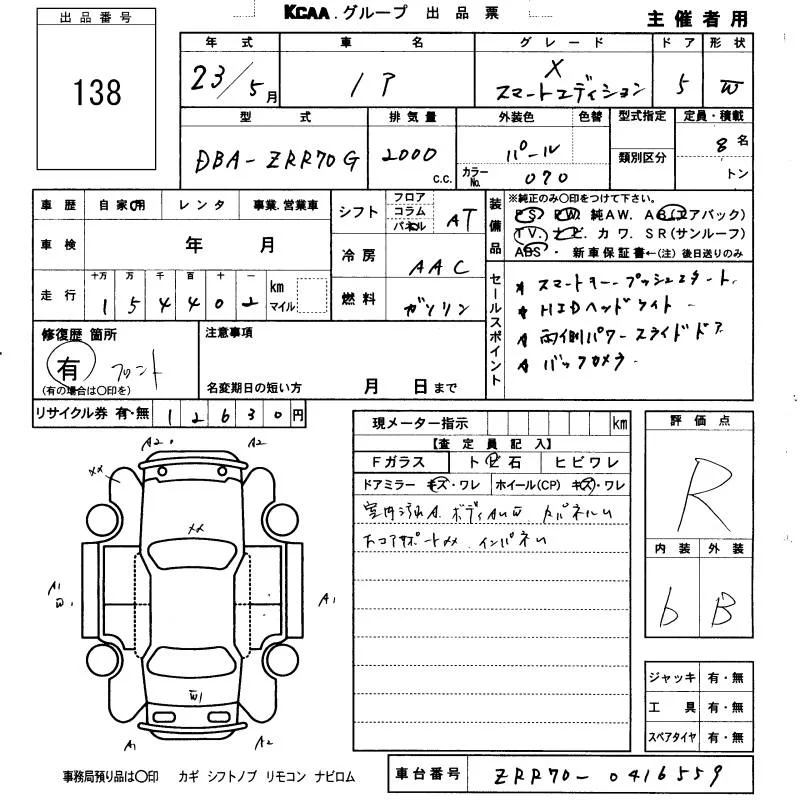 KCAA.グループ 出品票
主催者用
出品番号
138
年式 車名 グレード ドア 形状
23/5月 ノア X スマートエディション 5 W
型式 排気量 外装色 色替 型式指定 定員・積載
DBA-ZRR70G 2000 c.c. パール 8名
カラーNo. 070 類別区分 トン
車歴 自家用 レンタ 事業.営業車
車検 年 月
走行 十万 万 千 百 十 一 km マイル
1 5 4 4 0 2
シフト フロア コラム パネル AT
冷房 AAC
燃料 ガソリン
装備品
※純正のみ○印をつけて下さい。
PS. PW. 純AW. AB(エアバック)
TV. ナビ. カワ. SR(サンルーフ)
ABS. 新車保証書←(注)後日送りのみ
セールスポイント
スマートキー プッシュスタート
HIDヘッドライト
両側パワースライドドア
バックカメラ
修復歴 箇所
有 フロント
(有の場合は○印を)
注意事項
名変期日の短い方 月 日まで
リサイクル券 有・無 12630円
現メーター指示 km
【査定員記入】
Fガラス トビ石 ヒビワレ
ドアミラー キズ・ワレ ホイール(CP) キズ・ワレ
室内汚れA.ボディAUW
コアサポートXX インパネ
評価点
R
内装 外装
b B
A2 A2
XX
XX
A1
W1
A1
W1
A1 A2
ジャッキ 有・無
工具 有・無
スペアタイヤ 有・無
事務局預り品は○印 カギ シフトノブ リモコン ナビロム
車台番号 ZRR70-0416559